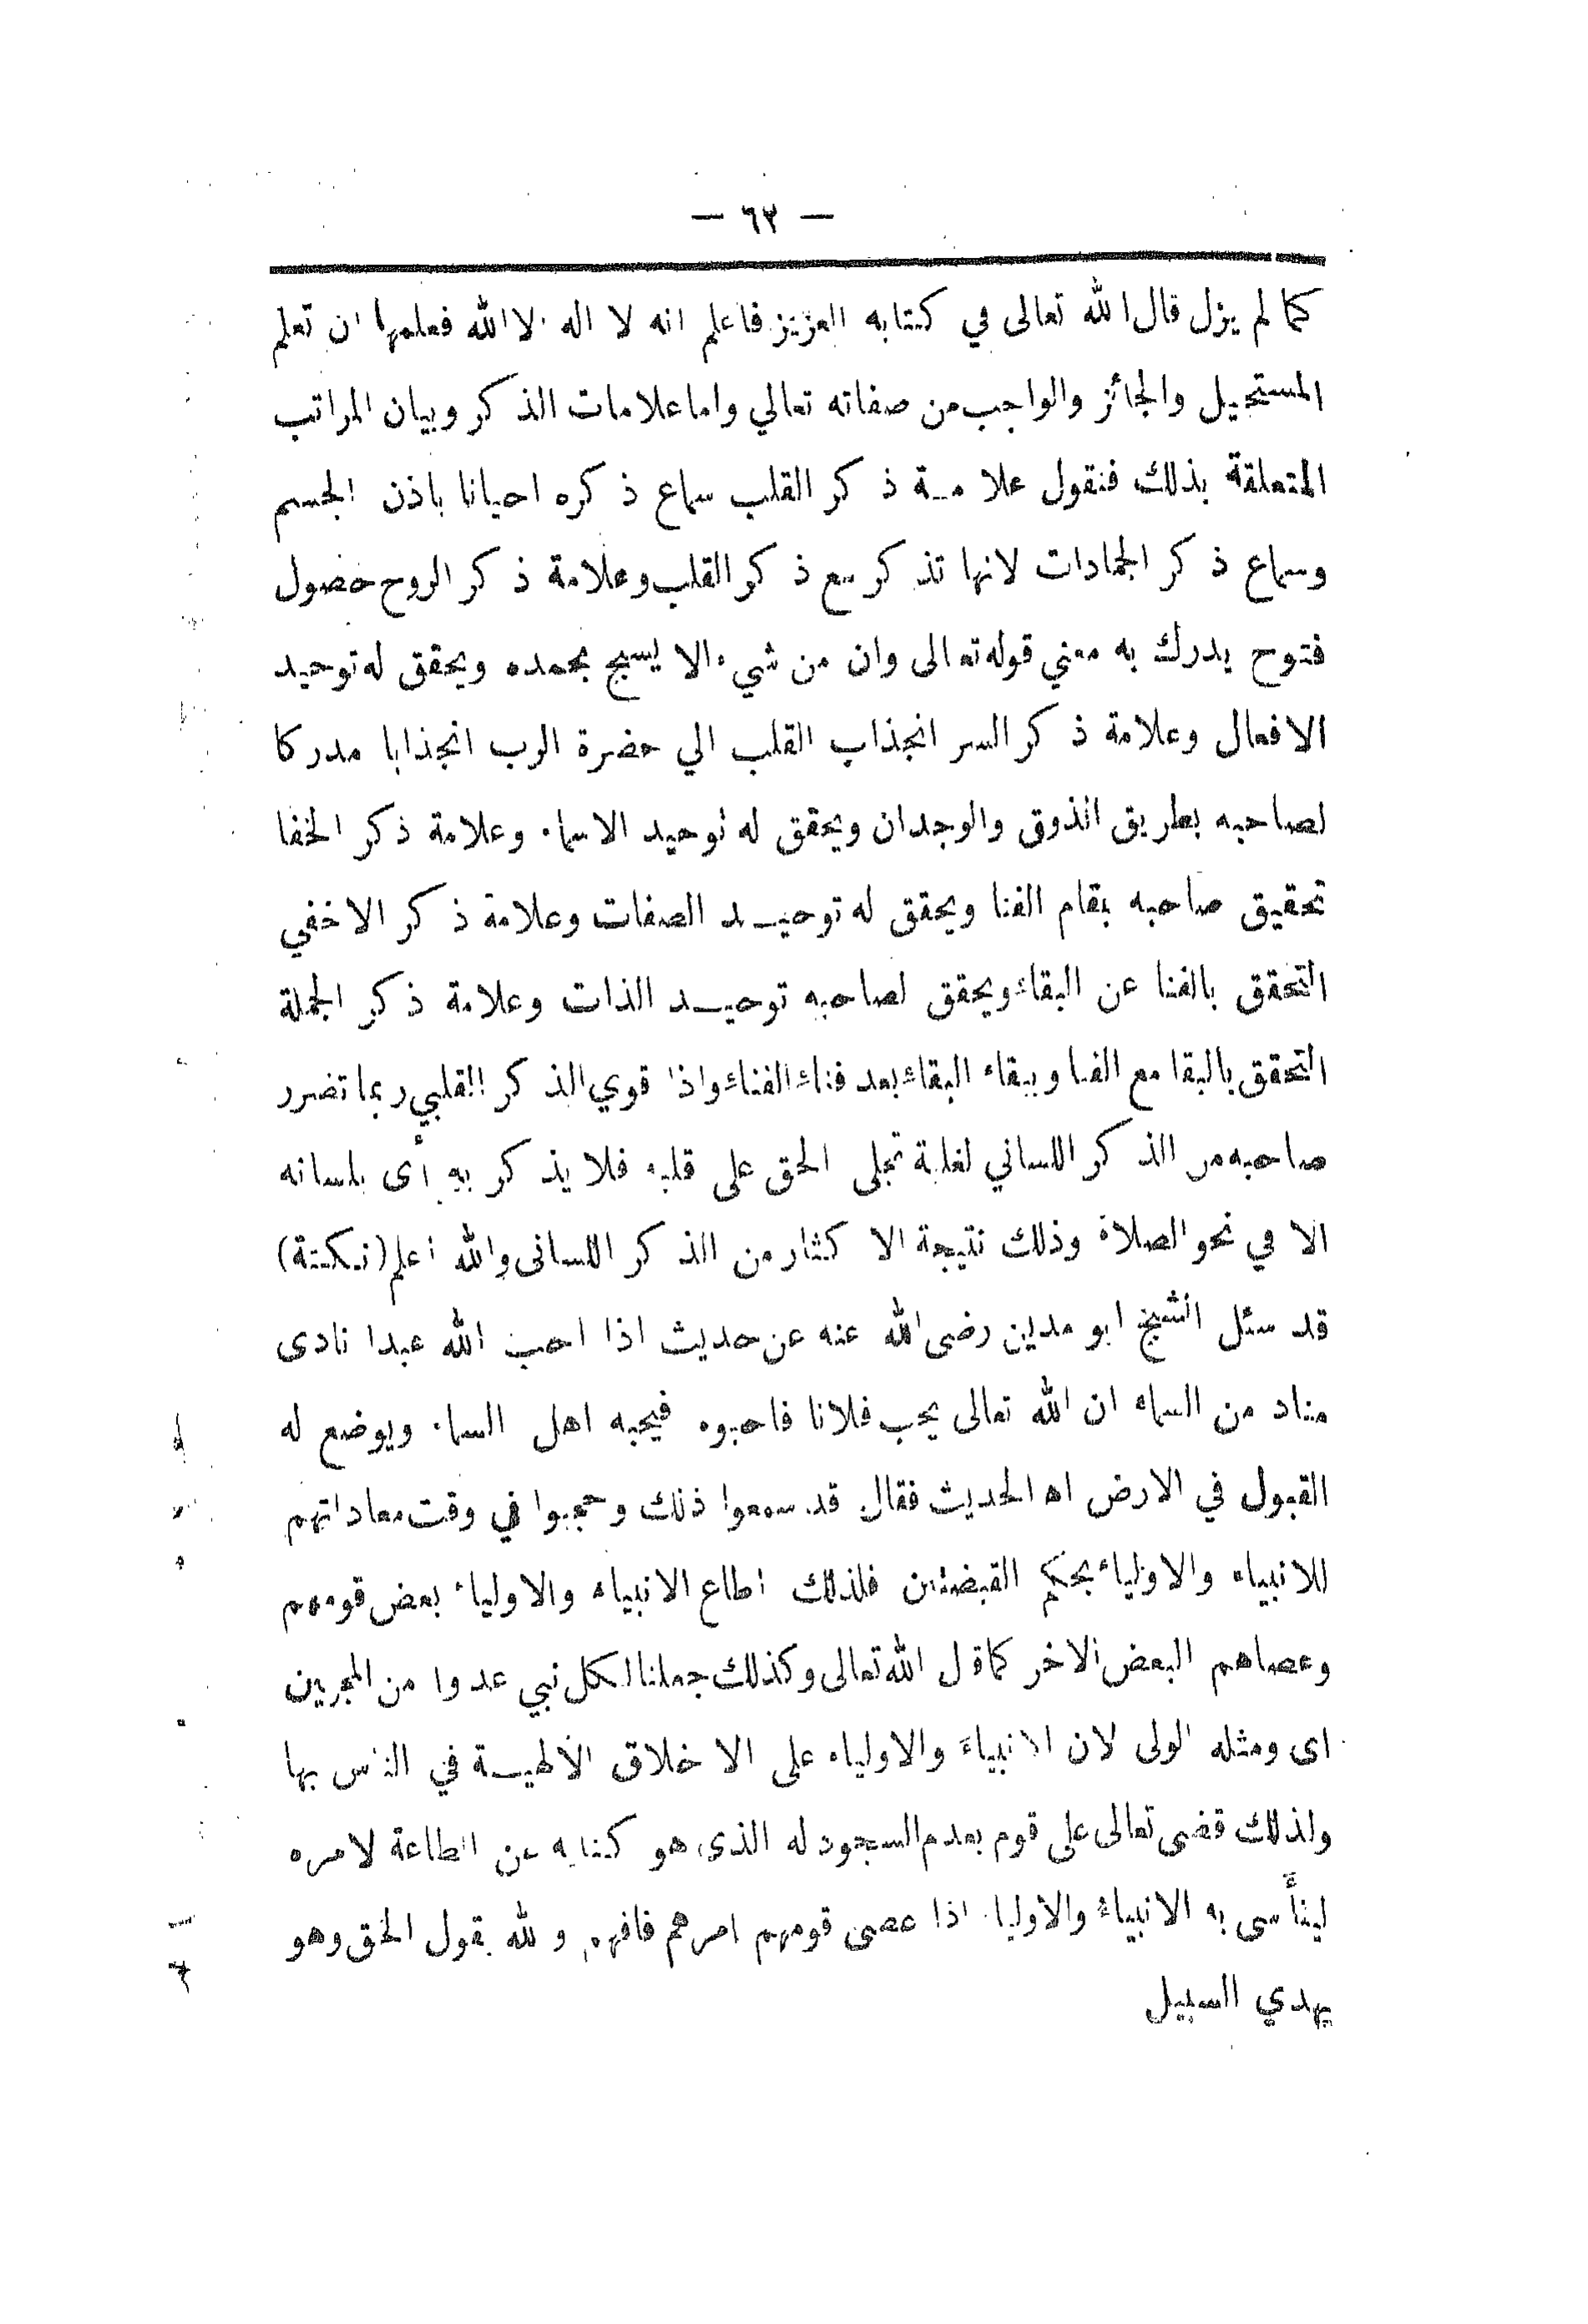 — ٦٢ —
كما لم يزل قال الله تعالى في كتابه العزيز فاعلم انه لا اله الا الله فعلمها ان تعلم
المستحيل والجائز والواجب من صفاته تعالي واما علامات الذكر وبيان المراتب
المتعلقة بذلك فنقول علامة ذكر القلب سماع ذكره احيانا باذن الجسم
وسماع ذكر الجمادات لانها تذكر مع ذكر القلب وعلامة ذكر الروح حصول
فتوح يدرك به معني قوله تعالى وان من شيء الا يسبح بحمده ويحقق له توحيد
الافعال وعلامة ذكر السر انجذاب القلب الي حضرة الرب انجذابا مدركا
لصاحبه بطريق الذوق والوجدان ويحقق له توحيد الاسماء وعلامة ذكر الخفا
تحقيق صاحبه بمقام الفنا ويحقق له توحيد الصفات وعلامة ذكر الاخفي
التحقق بالفنا عن البقاء ويحقق لصاحبه توحيد الذات وعلامة ذكر الجملة
التحقق بالبقا مع الفنا وببقاء البقاء بعد فناء الفناء واذا قوي الذكر القلبي ربما تضرر
صاحبه من الذكر اللساني لغلبة تجلى الحق على قلبه فلا يذكر به أى بلسانه
الا في نحو الصلاة وذلك نتيجة الاكثار من الذكر اللسانى والله أعلم (نكتة)
قد سئل الشيخ ابو مدين رضى الله عنه عن حديث اذا احب الله عبدا نادى
مناد من السماء ان الله تعالى يحب فلانا فاحبوه فيحبه اهل السماء ويوضع له
القبول في الارض اه الحديث فقال قد سمعوا ذلك وحجبوا في وقت معاداتهم
للانبياء والاولياء بحكم القبضتين فلذلك اطاع الانبياء والاولياء بعض قومهم
وعصاهم البعض الاخر كما قال الله تعالى وكذلك جعلنا لكل نبي عدوا من المجرمين
اى ومثله الولى لان الانبياء والاولياء على الاخلاق الالهية في الناس بها
ولذلك قضى تعالى على قوم بعدم السجود له الذى هو كناية عن الطاعة لامره
ليتأسى به الانبياء والاولياء اذا عصى قومهم امرهم فافهم والله يقول الحق وهو
يهدي السبيل